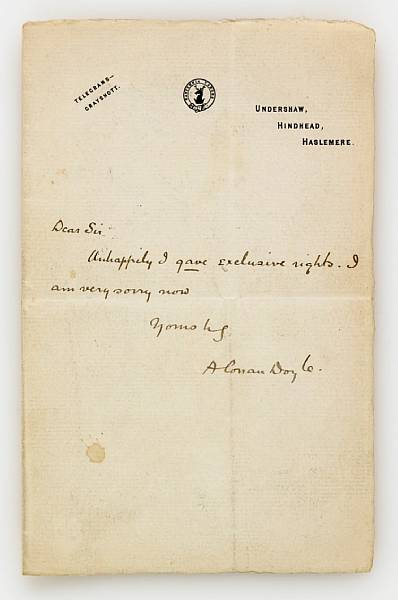 TELEGRAMS—
GRAYSHOTT.
UNDERSHAW,
HINDHEAD,
HASLEMERE.
Dear Sir
Unhappily I gave exclusive rights. I
am very sorry now
Yours
A Conan Doyle.